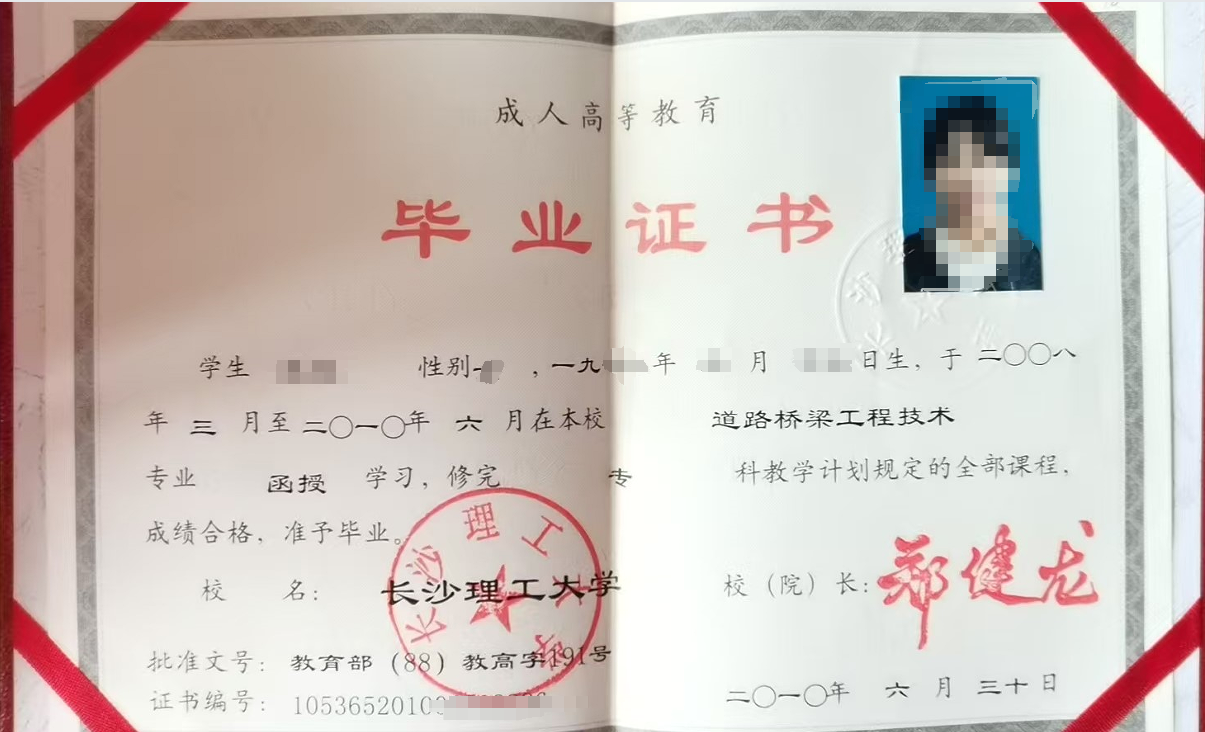 成人高等教育
毕业证书
学生 性别 ，一九 年 月 日生，于 二〇〇八
年 三 月至 二〇一〇年 六 月在本校 道路桥梁工程技术
专业 函授 学习，修完 专 科教学计划规定的全部课程，
成绩合格，准予毕业。
校 名： 长沙理工大学
校（院）长： 郑健龙
批准文号： 教育部（88）教高字191号
证书编号： 10536520100
二〇一〇年 六 月 三十 日
长沙理工大学